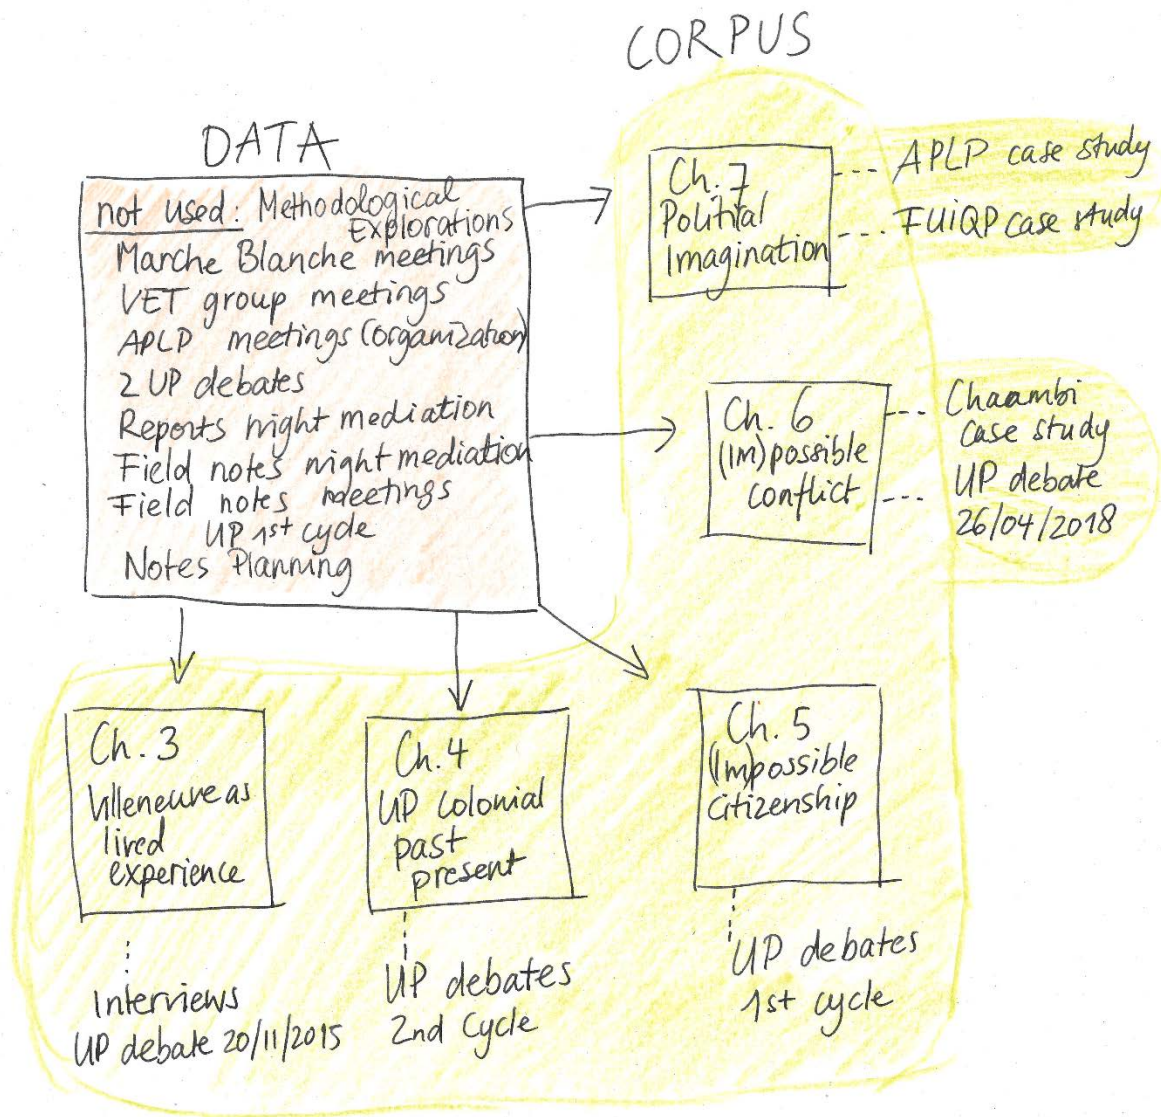 CORPUS
DATA
not used: Methodological
Explorations
Marche Blanche meetings
VET group meetings
APLP meetings (organization)
2 UP debates
Reports night mediation
Field notes night mediation
Field notes meetings
UP 1st cycle
Notes Planning
Ch. 7
Political
Imagination
APLP case study
FUiQP case study
Ch. 6
(Im)possible
conflict
Chaambi
case study
UP debate
26/04/2018
Ch. 3
Villeneuve as
lived
experience
Interviews
UP debate 20/11/2015
Ch. 4
UP colonial
past
present
UP debates
2nd Cycle
Ch. 5
(Im)possible
citizenship
UP debates
1st cycle